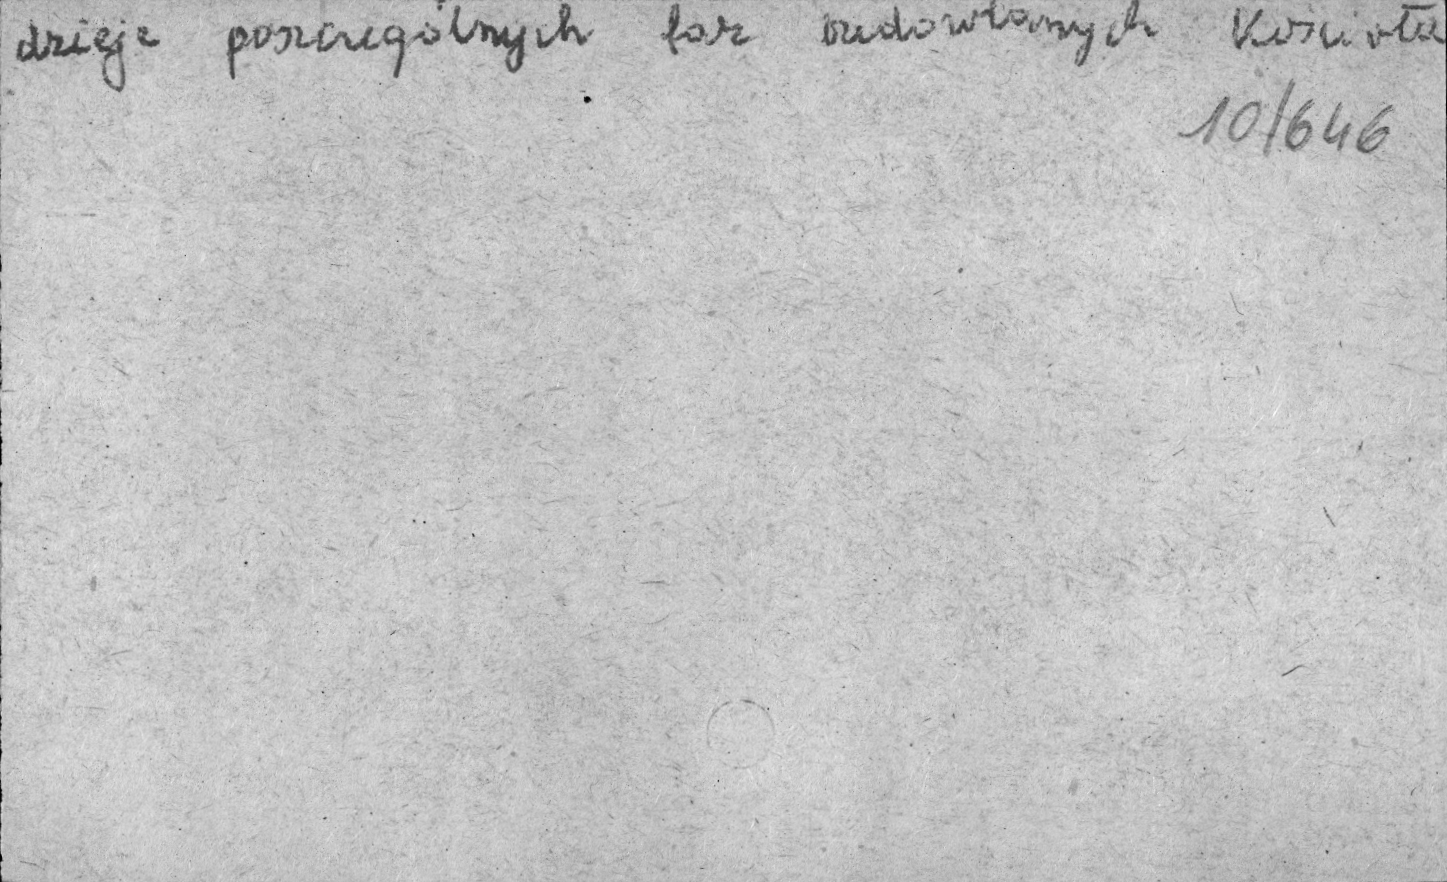 dzieje poszczególnych faz budowlanych Kościoła
10/646